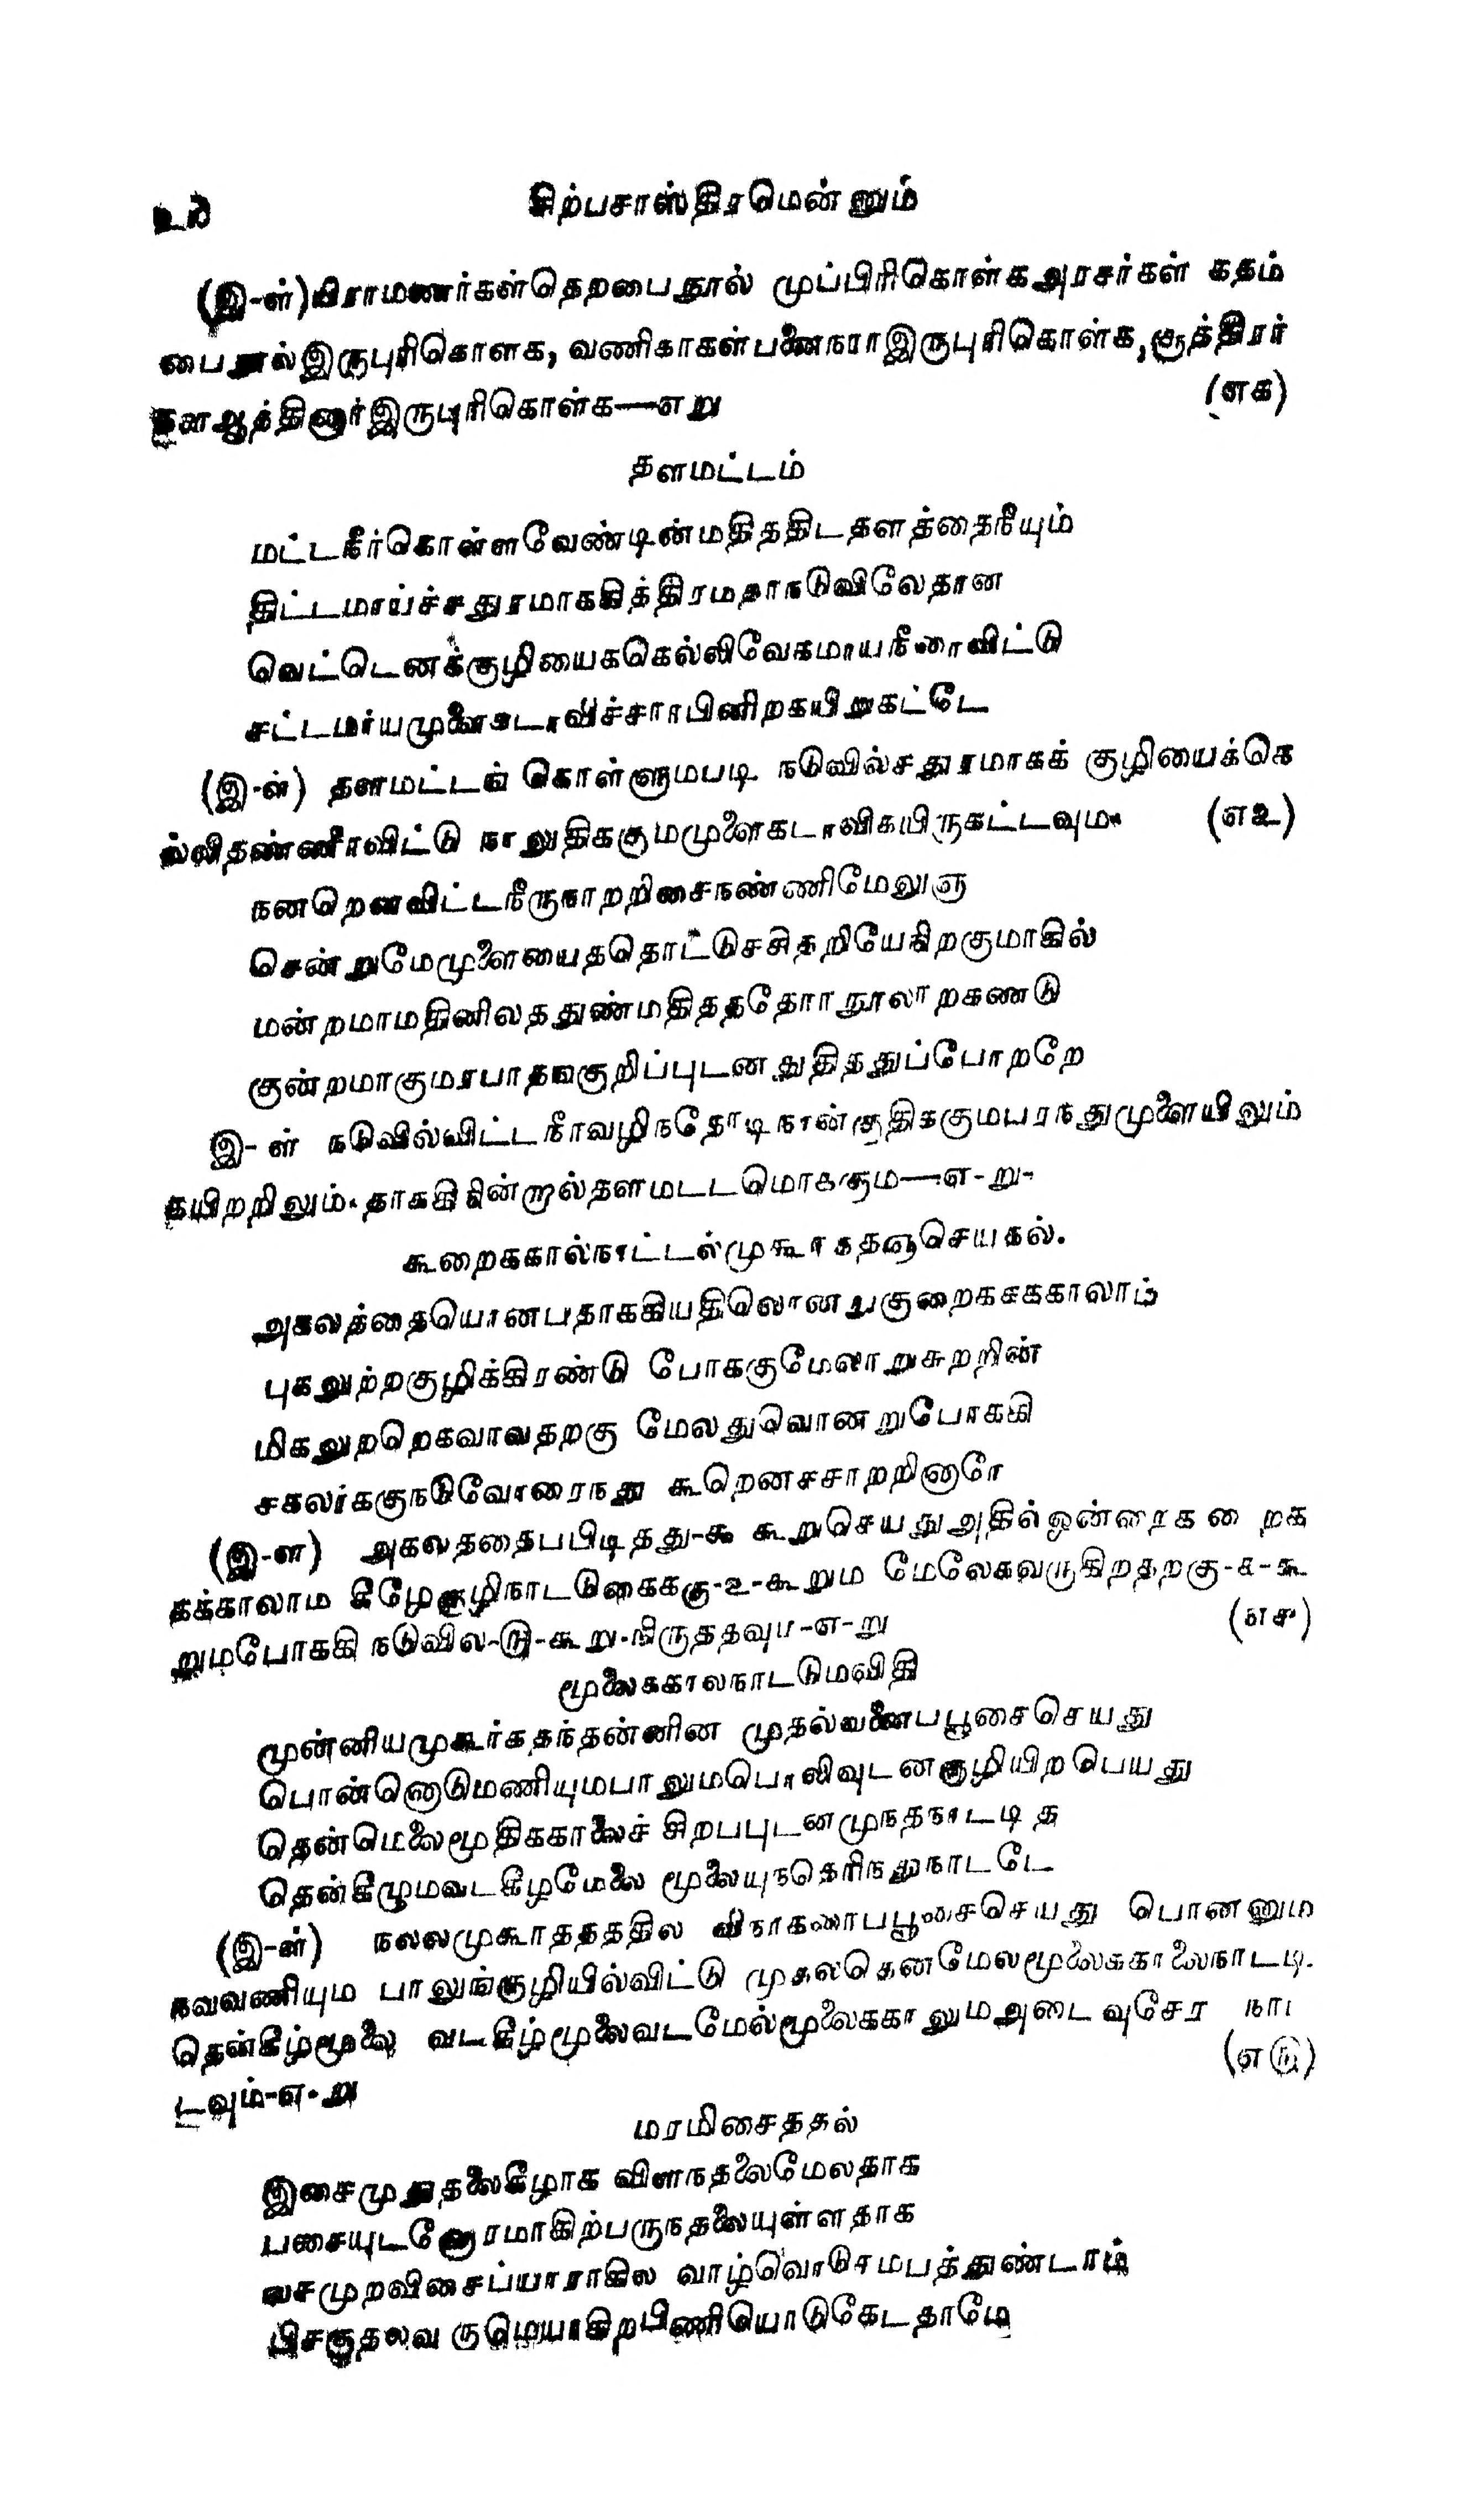 சிற்பசாஸ்திரமென்னும்
(இ-ள்) பிராமணர்கள்தெறபைநூல் முப்பிரிகொள்க அரசர்கள் கதம்
பைநூல்இருபுரிகொளக, வணிகாகள்பனைநாாஇருபுரிகொள்க, சூத்திரர்
களஆத்தினார்இருபுரிகொள்க—எறு (எக)
தளமட்டம்
மட்டநீர்கொள்ளவேண்டின்மதிததிடதளத்தைநீயும்
திட்டமாய்ச்சதுரமாககித்திரமதாநடுவிலேதான
வெட்டெனக்குழியைககெல்லிவேகமாயநீரைவிட்டு
சட்டமாயமுளைகடாவிச்சாாபினிறகயிறுகட்டே
(இ-ள்) தளமட்டங் கொள்ளுமபடி நடுவில்சதுரமாகக் குழியைக்கெ
ல்லிதண்ணீாவிட்டு நாலுதிககுமமுளைகடாவிகயிருகட்டவும (எஉ)
நனறெனவிட்டநீருநாறறிசைநண்ணிமேலுஞ
சென்றுமேமுளையைததொட்டுசசிதறியேநிறகுமாகில்
மன்றமாமதினிலததுண்மதிதததோாநூலாறகணடு
குன்றமாகுமரபாதஙகுறிப்புடனதுதிததுப்போறறே
இ-ள் நடுவில்விட்டநீாவழிநதோடிநான்குதிககுமபரநதுமுளையிலும்
கயிறறிலும்தாககிநின்றால்தளமடடமொககும—எ-று-
கூறைககால்நாட்டல்முகூாகதஞசெயகல்.
அகலத்தையொனபதாககியதிலொனறுகுறைகககக்காலாம்
புகலுற்றகுழிக்கிரண்டு போககுமேலாறுசுறறின்
மிகலுறறெகவாவதறகு மேலதுவொணறுபோககி
சகலர்ககுநடுவோரைநது கூறெனசசாறறினாரே
(இ-ள) அகலததைபபிடித்து-கூ கூறுசெயதுஅதில்ஒன்றைக றைக
கக்காலாம கீழேகுழிநாடடுகைககு-உ-கூறும மேலேகவருகிறதறகு-க-கூ
றுமபோககி நடுவில-ரு-கூறு-நிருததவும-எ-று (எச)
மூலைககாலநாடடுமவிதி
மூன்னியமுகூர்கதந்தன்னின முதல்வனைபபூசைசெயது
பொன்னொடுமணியுமபாலுமபொலிவுடனகுழியிறபெயது
தென்மெலைமூதிககாலைச் சிறபபுடனமுநதநாடடி த
தென்கீழுமவடகீழமேலை மூலையுநதெரிநதுநாடடே
(இ-ள்) நலலமுகூாதததில விநாகணாபபூசைசெயது பொனனும
நவவணியும பாலுங்குழியில்விட்டு முதலதெனமேலமூலைககாலைநாடடி.
தென்கீழ்மூலை வடகீழ்மூலைவடமேல்மூலைககாலுமஅடைவுசேர நாட
டவும்-எ.று (எரு)
மரமிசைததல்
இசைமுதுதலைகீழாக விளநதலைமேலதாக
பசையுடனோரமாகிற்பருநதலையுள்ளதாக
வசமுறவிசைப்யாராகில வாழ்வொடுசமபத்துண்டாம்
பிசகுதலவ ருமெயாகிறபிணியொடுகேடதாமே